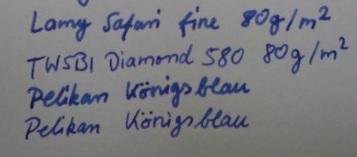 Lamy Safari fine 80g/m²
TWSBI Diamond 580 80g/m²
Pelikan Königsblau
Pelikan Königsblau